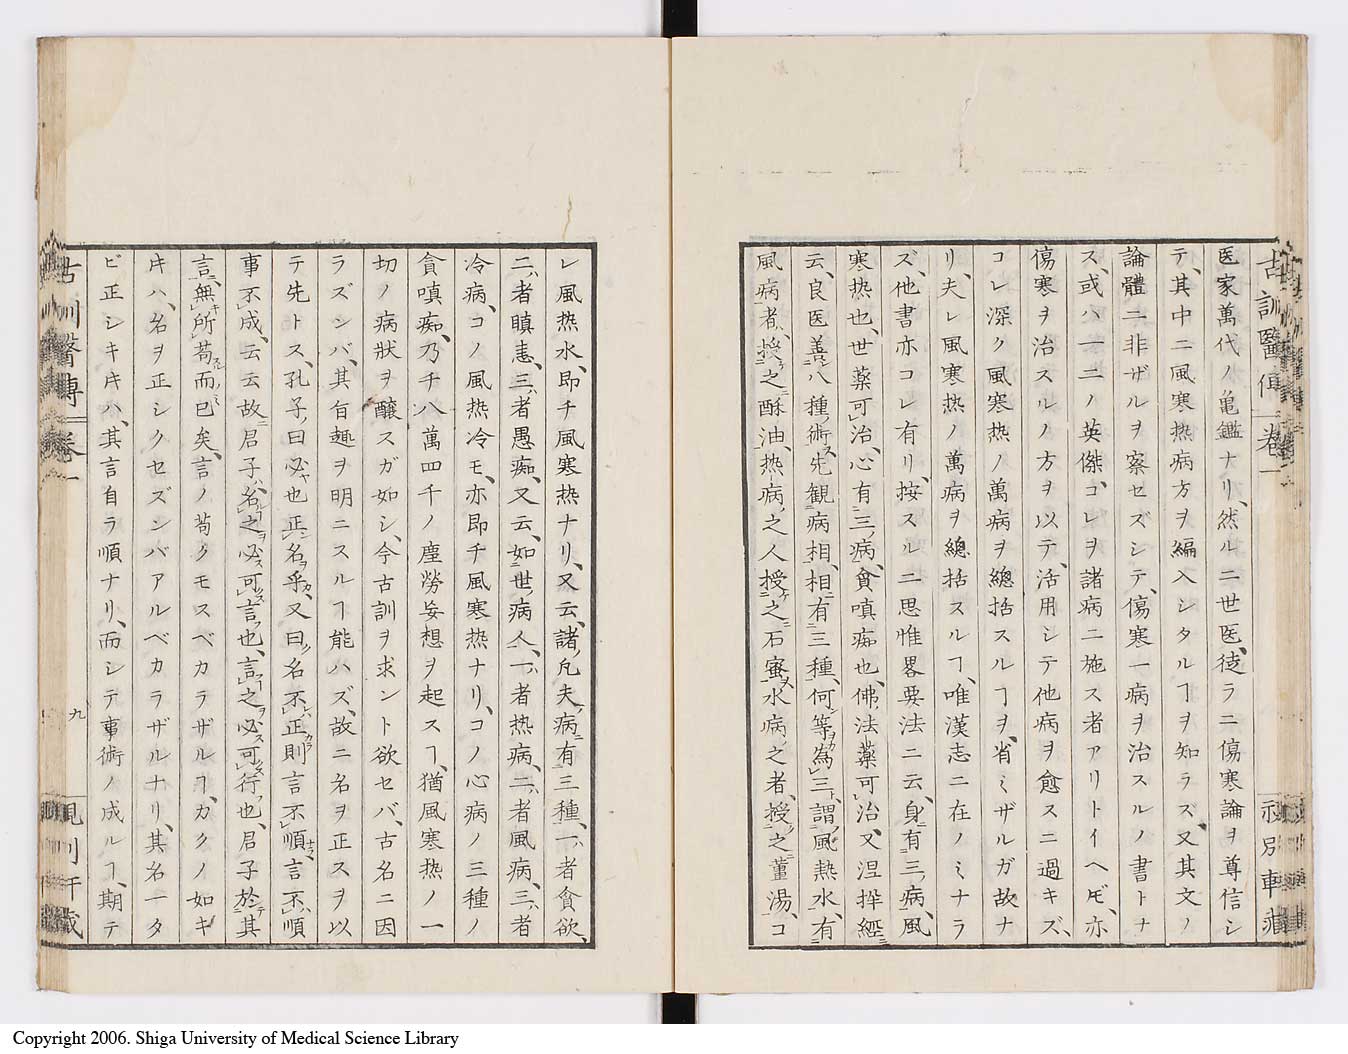 古訓醫傳 卷一
医家萬代ノ亀鑑ナリ、然ルニ世医、徒ラニ傷寒論ヲ尊信シ
テ、其中ニ風寒熱病方ヲ編入シタルヿヲ知ラズ、又其文ノ
論體ニ非ザルヲ察セズシテ、傷寒一病ヲ治スルノ書トナ
ス、或ハ一二ノ英傑、コレヲ諸病ニ施ス者アリトイヘ𪜈、亦
傷寒ヲ治スルノ方ヲ以テ、活用シテ他病ヲ愈スニ過キズ、
コレ深ク風寒热ノ萬病ヲ總括スルヿヲ、省ミザルガ故ナ
リ、夫レ風寒热ノ萬病ヲ總括スルヿ、唯漢志ニ在ノミナラ
ズ、他書亦コレ有リ、按スルニ思惟畧要法ニ云、身有三病、風
寒热也、世薬可治、心有三病、貪嗔痴也、佛法薬可治、又涅槃經
云、良医善八種術先観病相、相有三種、何等為三、謂風熱水、有
風病者、授之酥油、热病之人授之石蜜、水病之者、授之薑湯、コ
レ風热水、即チ風寒热ナリ、又云、諸凡夫病有三種、一者貪欲、
二者瞋恚、三者愚痴、又云、如世病人、一者热病、二者風病、三者
冷病、コノ風热冷モ、亦即チ風寒熱ナリ、コノ心病ノ三種ノ
貪嗔痴、乃チ八萬四千ノ塵勞妄想ヲ起スヿ、猶風寒热ノ一
切ノ病狀ヲ醸スガ如シ、今古訓ヲ求ント欲セバ、古名ニ因
ラズンバ、其旨趣ヲ明ニスルヿ能ハズ、故ニ名ヲ正スヲ以
テ先トス、孔子曰必也正名乎、又曰名不正則言不順言不順
事不成、云云故君子名之必可言也、言之必可行也、君子於其
言、無所苟而已矣、言ノ苟クモスベカラザルヿ、カクノ如キ
𪜈ハ、名ヲ正シクセズンバアルベカラザルナリ、其名一タ
ビ正シキ𪜈ハ、其言自ラ順ナリ、而シテ事術ノ成ルヿ、期テ
九